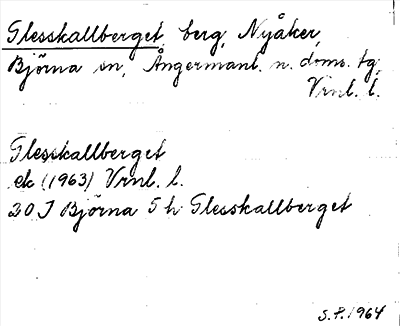 Glesskallberget, berg, Nyåker,
Björna sn, Ångermanl. n. doms. tg,
Vrnl. l.
Glesskallberget
ek (1963) Vrnl. l.
20 J Björna 5 h Glesskallberget
S.P. 1964